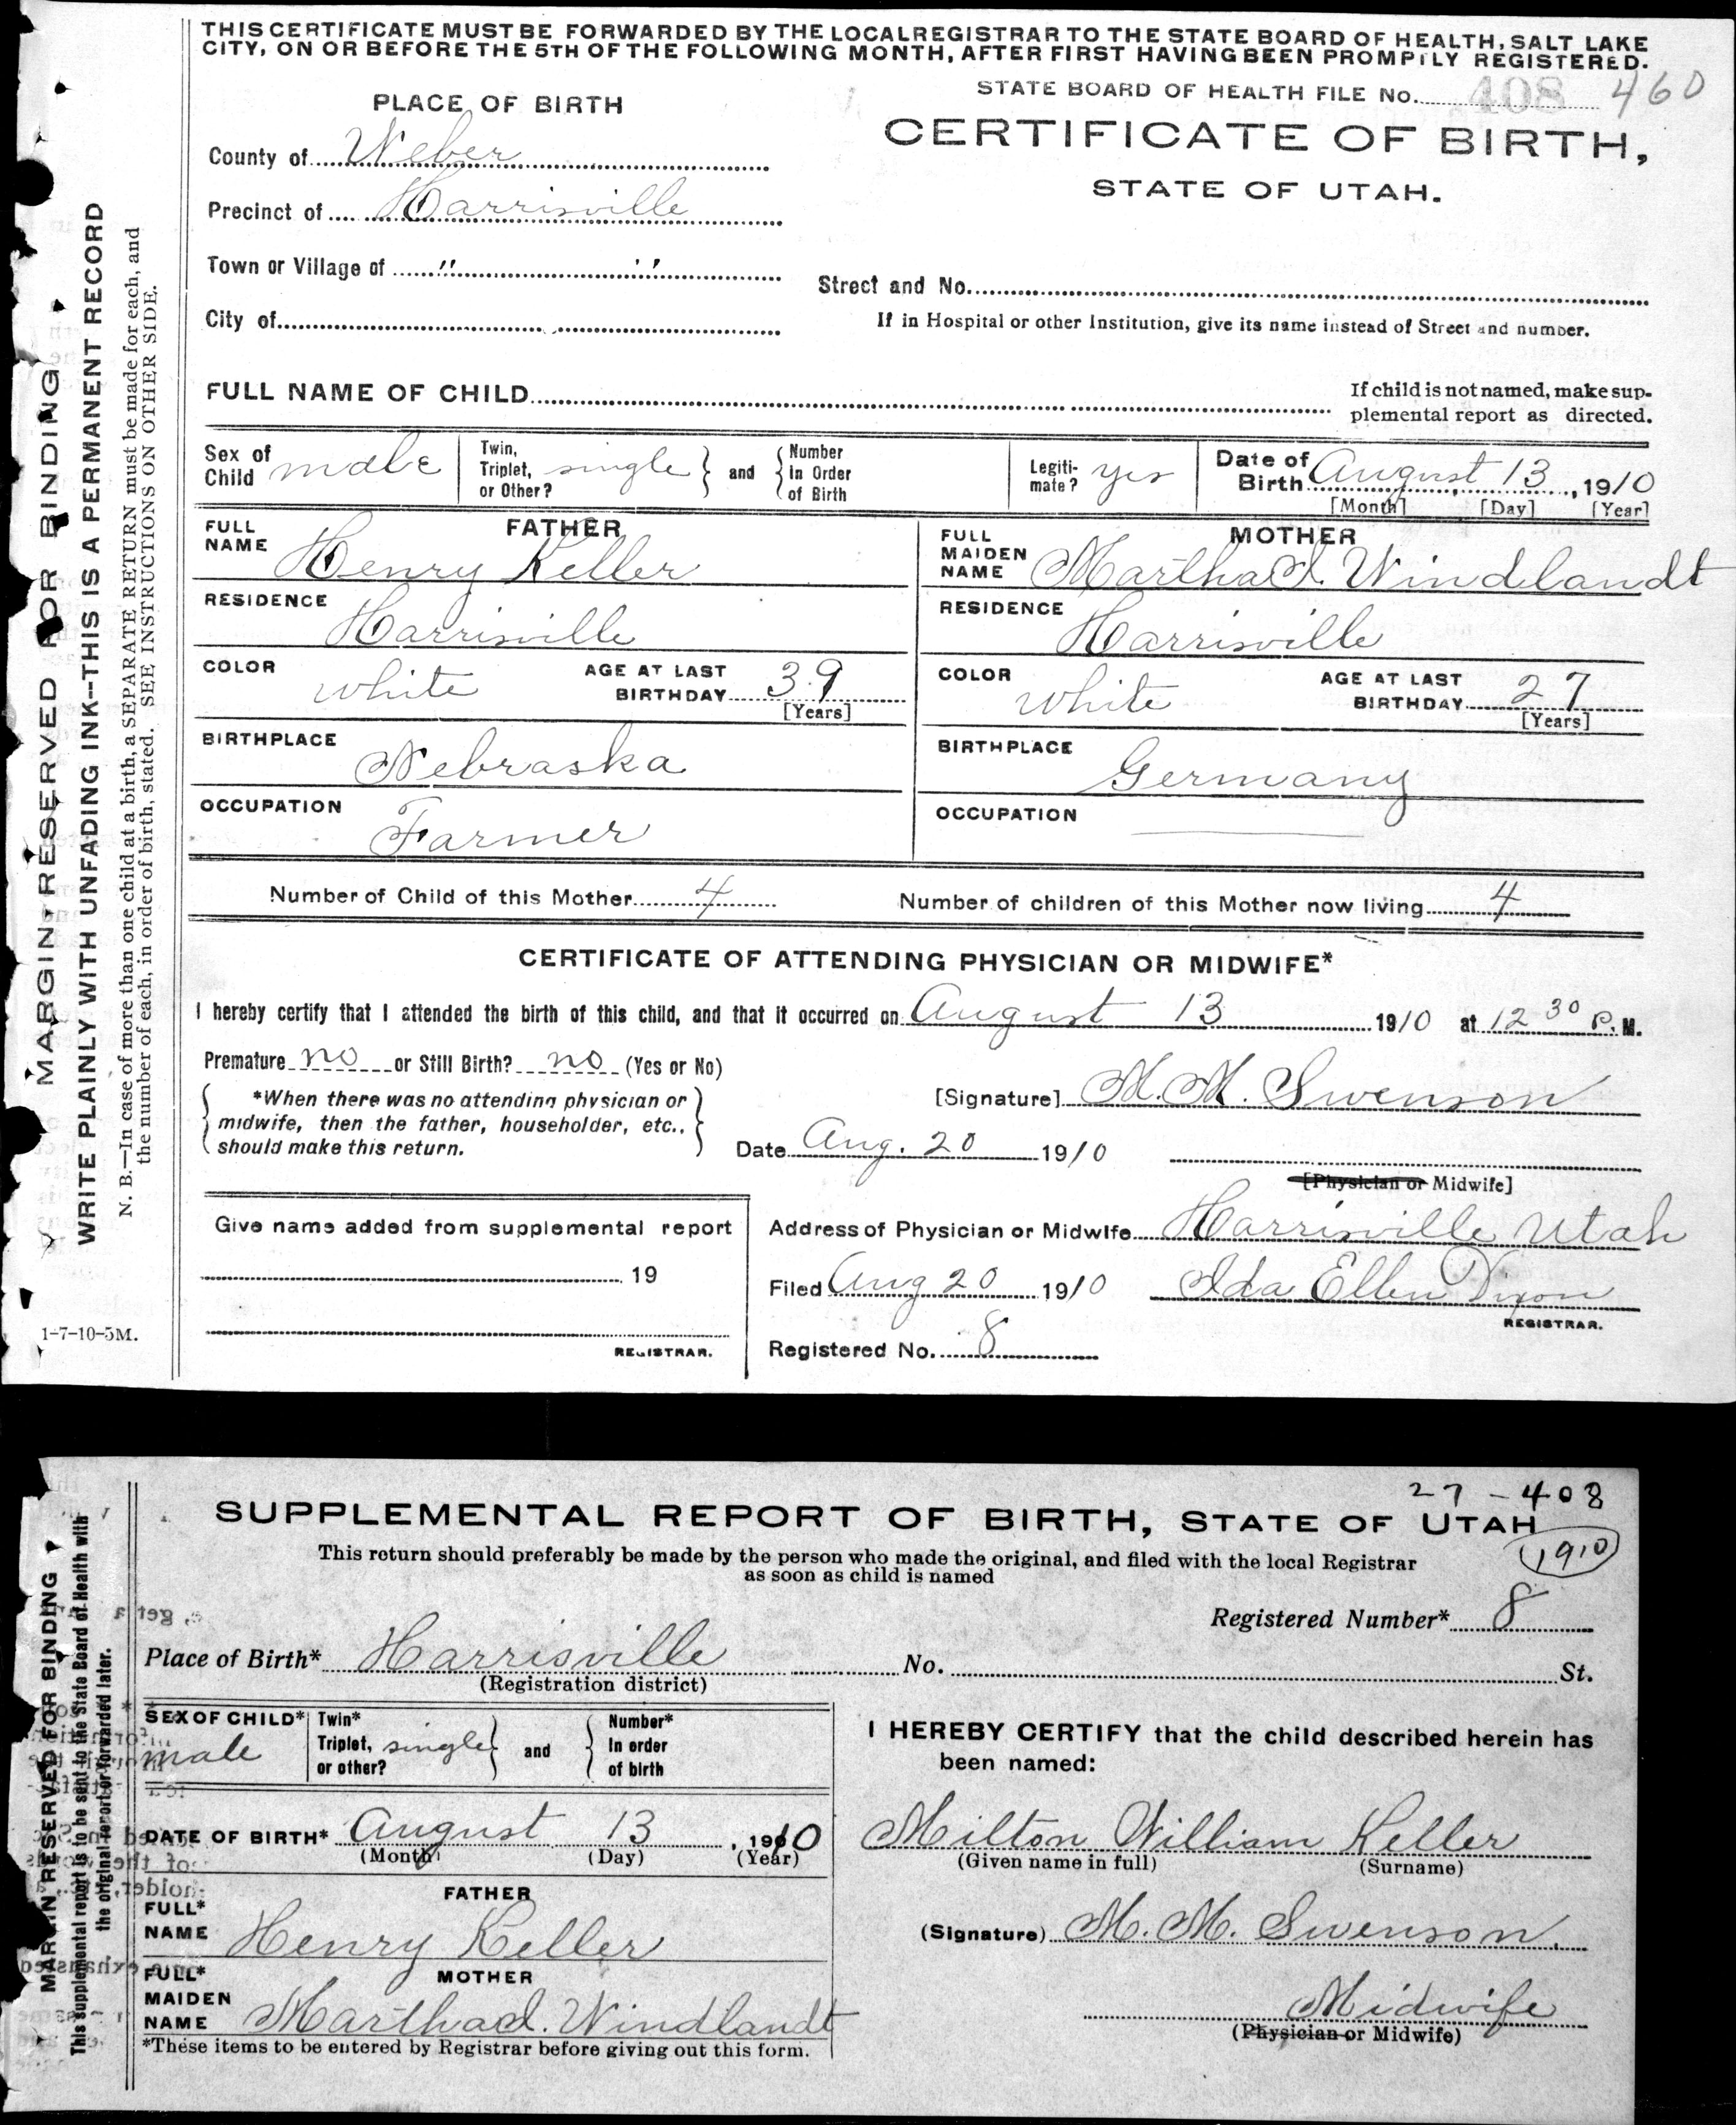 THIS CERTIFICATE MUST BE FORWARDED BY THE LOCAL REGISTRAR TO THE STATE BOARD OF HEALTH, SALT LAKE
CITY, ON OR BEFORE THE 5TH OF THE FOLLOWING MONTH, AFTER FIRST HAVING BEEN PROMPTLY REGISTERED.
STATE BOARD OF HEALTH FILE No. 408 460
PLACE OF BIRTH
CERTIFICATE OF BIRTH,
STATE OF UTAH.
County of Weber
Precinct of Harrisville
Town or Village of " "
Street and No.
City of
If in Hospital or other Institution, give its name instead of Street and number.
FULL NAME OF CHILD
If child is not named, make sup-
plemental report as directed.
Sex of Child male
Twin, Triplet, or Other? single and Number In Order of Birth
Legiti-mate? yes
Date of Birth August 13, 1910
[Month] [Day] [Year]
FATHER
FULL NAME Henry Keller
MOTHER
FULL MAIDEN NAME Martha I. Windlandt
RESIDENCE Harrisville
RESIDENCE Harrisville
COLOR white AGE AT LAST BIRTHDAY 39 [Years]
COLOR white AGE AT LAST BIRTHDAY 27 [Years]
BIRTHPLACE Nebraska
BIRTHPLACE Germany
OCCUPATION Farmer
OCCUPATION
Number of Child of this Mother 4 Number of children of this Mother now living 4
CERTIFICATE OF ATTENDING PHYSICIAN OR MIDWIFE*
I hereby certify that I attended the birth of this child, and that it occurred on August 13 1910 at 12 30 P. M.
Premature no or Still Birth? no (Yes or No)
*When there was no attending physician or
midwife, then the father, householder, etc.,
should make this return.
[Signature] M. M. Swenson
Date Aug. 20 1910
[Physician or Midwife]
Give name added from supplemental report
19
REGISTRAR.
Address of Physician or Midwife Harrisville Utah
Filed Aug 20 1910 Ida Ellen Dixon
REGISTRAR.
Registered No. 8
MARGIN RESERVED FOR BINDING
WRITE PLAINLY WITH UNFADING INK--THIS IS A PERMANENT RECORD
N. B.—In case of more than one child at a birth, a SEPARATE RETURN must be made for each, and
the number of each, in order of birth, stated. SEE INSTRUCTIONS ON OTHER SIDE.
1-7-10-5M.
27 - 408
SUPPLEMENTAL REPORT OF BIRTH, STATE OF UTAH
1910
This return should preferably be made by the person who made the original, and filed with the local Registrar
as soon as child is named
Registered Number* 8
Place of Birth* Harrisville No. St.
(Registration district)
SEX OF CHILD* male
Twin* Triplet, or other? single and Number* In order of birth
DATE OF BIRTH* August 13, 1910
(Month) (Day) (Year)
FATHER
FULL* NAME Henry Keller
MOTHER
FULL* MAIDEN NAME Martha I. Windlandt
*These items to be entered by Registrar before giving out this form.
I HEREBY CERTIFY that the child described herein has
been named:
Milton William Keller
(Given name in full) (Surname)
(Signature) M. M. Swenson.
Midwife
(Physician or Midwife)
MARGIN RESERVED FOR BINDING
This supplemental report is to be sent to the State Board of Health with
the original report or forwarded later.